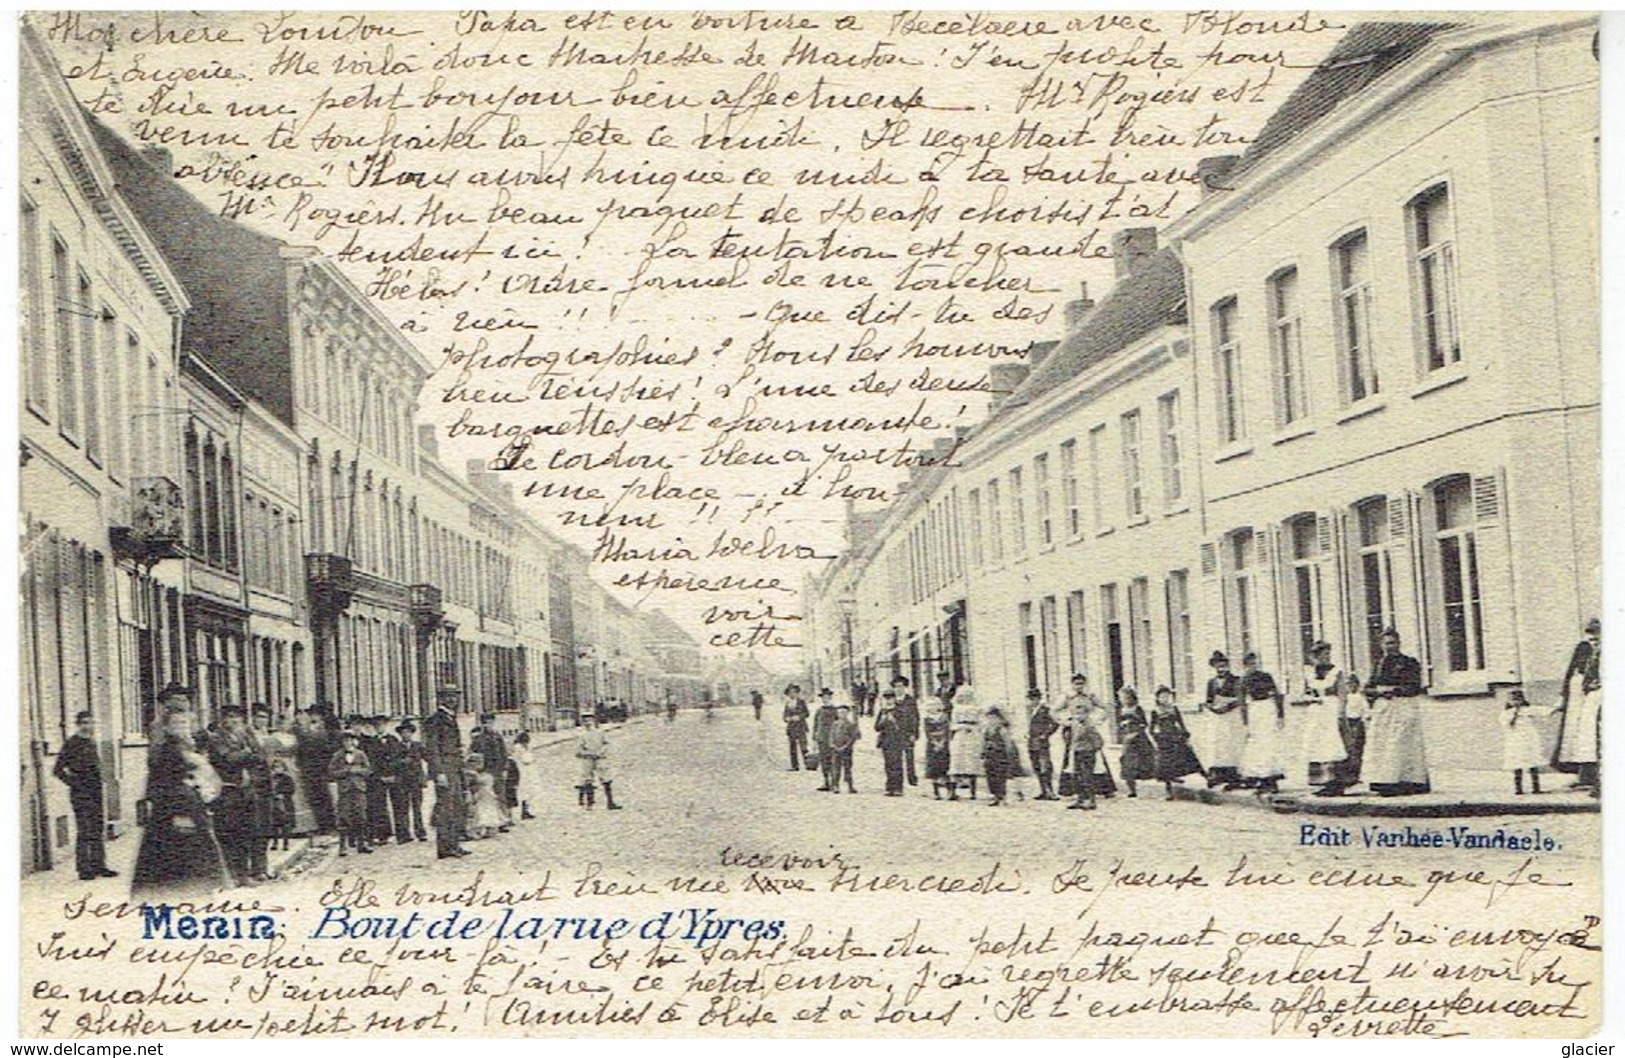 Ma chère Louison. Papa est en voiture à Becelaere avec Blonde
et Eugenie. Me voilà donc Maitresse de Maison! J'en profite pour
te dire un petit bonjour bien affectueux. Mr Rogiers est
venu te souhaiter la fête ce midi. Il regrettait bien ton
absence! Nous avons trinqué ce midi à ta santé avec
Mr Rogiers. Un beau paquet de choisis t'at
tendent ici! La tentation est grande!
Hélas! Ordre formel de ne toucher
à rien!!! - Que dis-tu des
photographies? Nous les trouvons
bien réussies! L'une des deux
barquettes est charmante!
Le cordon-bleu a partout
une place - d'hon-
neur !! !!
Maria
espère me
voir
cette
semaine. Elle voudrait bien me recevoir mercredi. Je pense lui écrire que je
Menin: Bout de la rue d'Ypres.
Edit Vanhée-Vandaele.
suis empêchée ce jour-là! - Es tu satisfaite du petit paquet que je t'ai envoyé
ce matin? J'aimais à te faire ce petit envoi, j'ai regretté seulement n'avoir su
y glisser un petit mot! Amitiés à Elise et à tous! Je t'embrasse affectueusement
delcampe.net
glacier